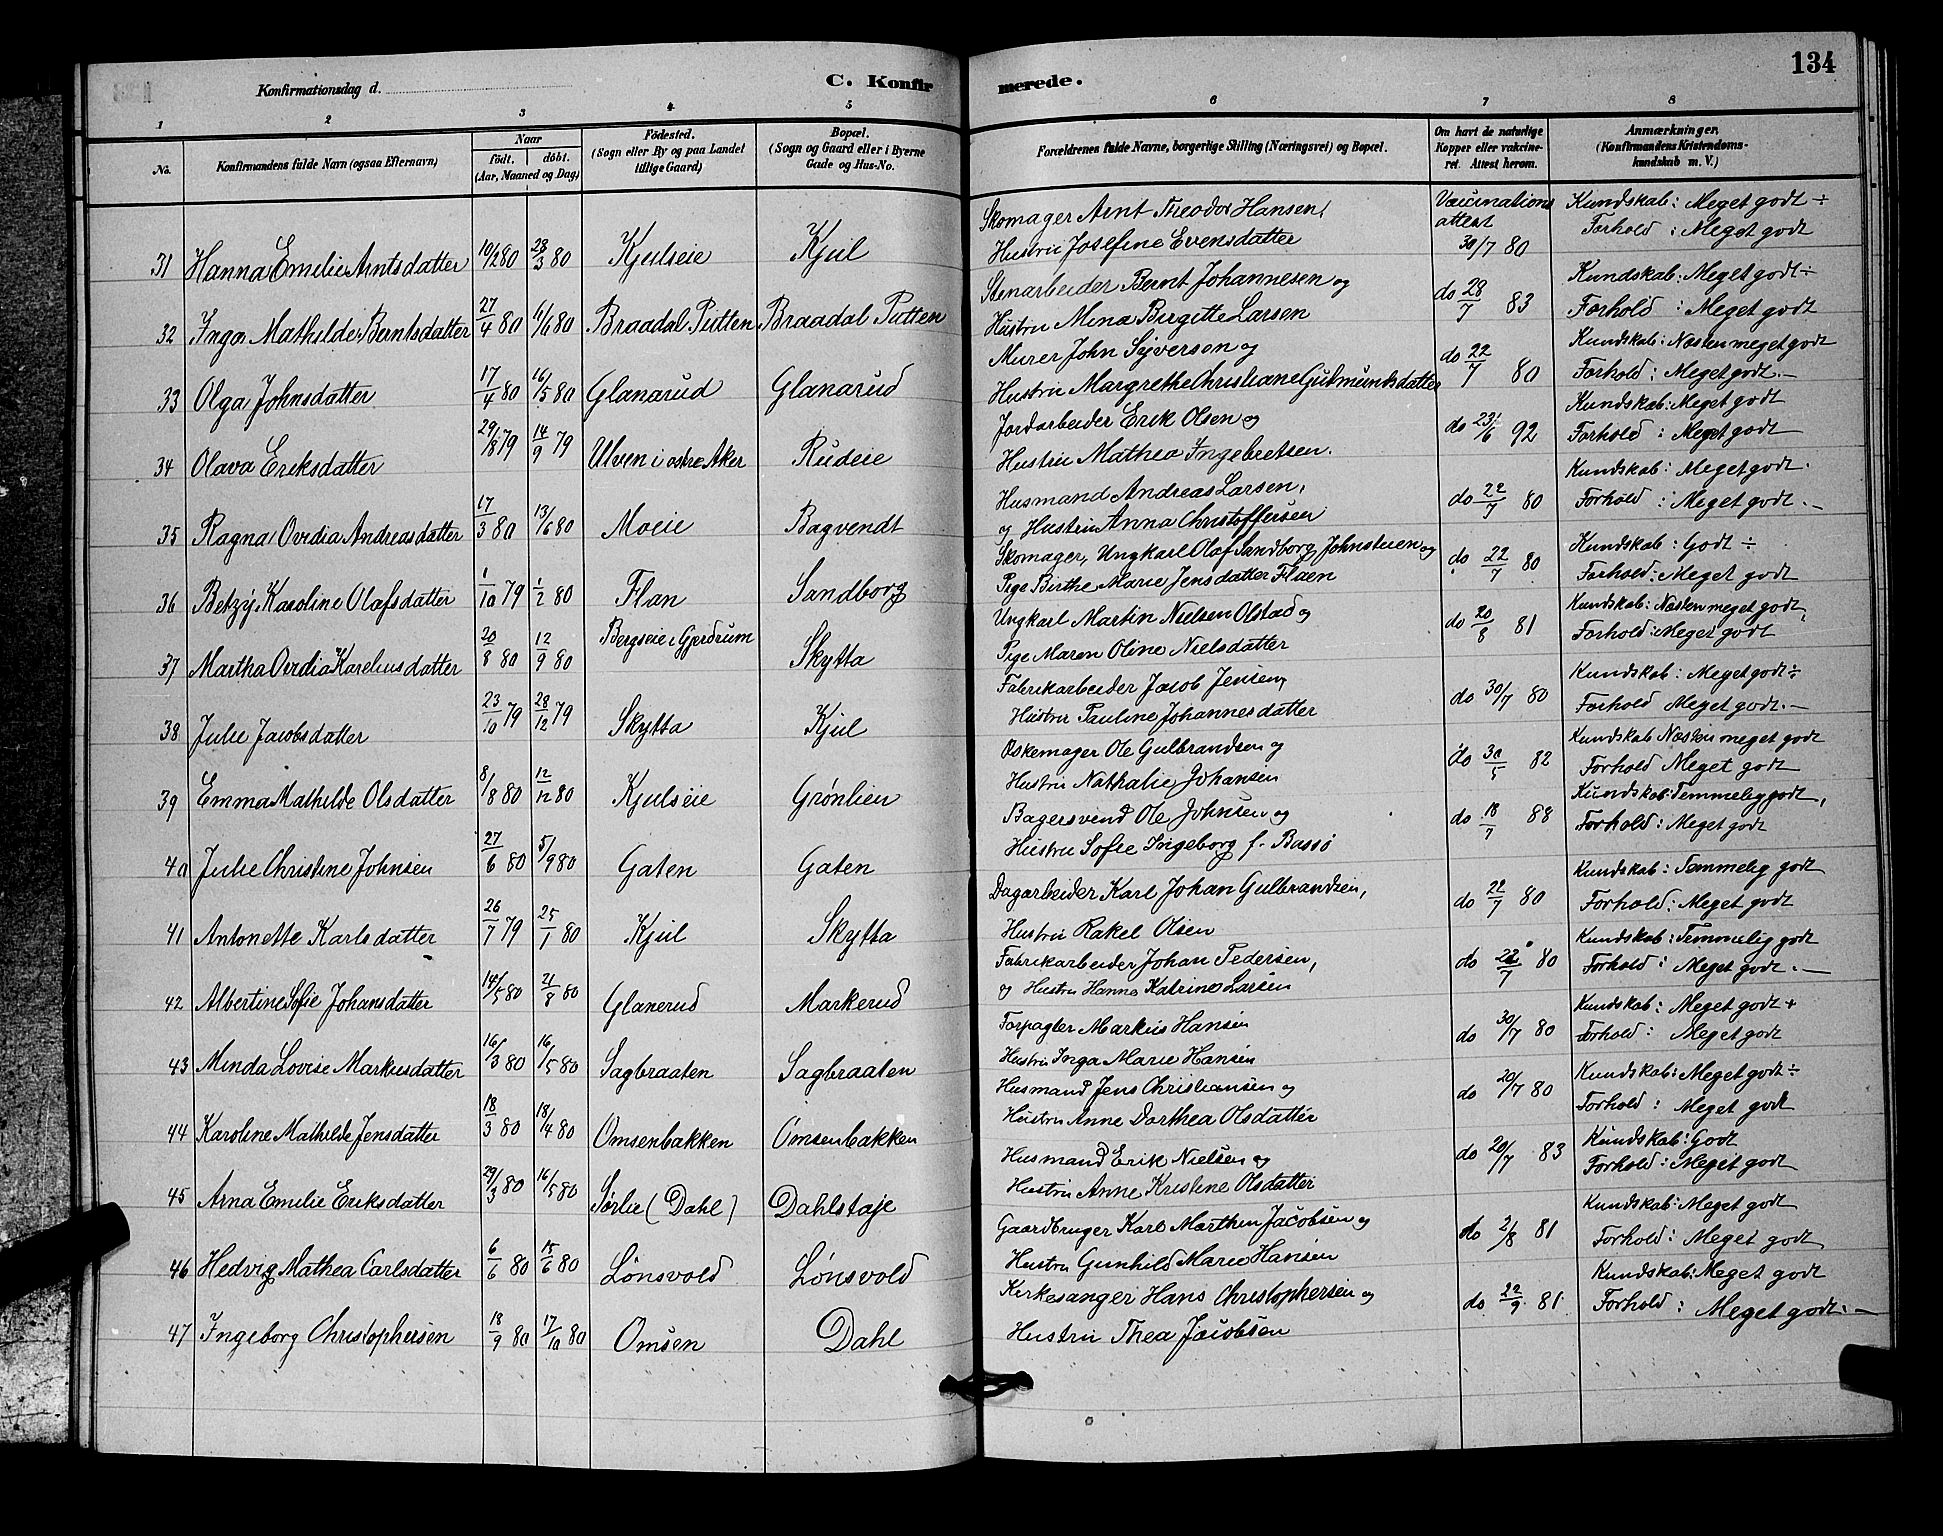 134
Konfirmationsdag d.
C. Konfirmerede.
1 2 3 4 5 6 7 8
No. Konfirmandens fulde Navn (ogsaa Efternavn) Naar født. døbt. (Aar, Maaned og Dag) Födested. (Sogn eller By og paa Landet tillige Gaard) Bopæl. (Sogn og Gaard eller i Byerne Gade og Hus-No. Forældrenes fulde Navne, borgerlige Stilling (Næringsvei) og Bopæl. Om havt de naturlige Kopper eller vakcineret. Attest herom. Anmærkninger. (Konfirmandens Kristendomskundskab m. V.)
Skomager Arnt Theodor Hansen, Vaccinations attest Kundskab: Meget godt ÷
31 Hanna Emilie Arntsdatter 10/2 80 23/3 80 Kjulseie Kjul Hustru Josefine Evensdatter 30/7 80 Forhold: Meget godt
Stenarbeider Bernt Johannesen og Kundskab: Meget godt ÷
32 Inga Mathilde Berntsdatter 27/4 80 6/6 80 Braadal Putten Braadal Putten Hustru Mina Birgitte Larsen do 28/7 83 Forhold: Meget godt
Murer John Syversen og Kundskab: Næsten meget godt
33 Olga Johnsdatter 17/4 80 16/5 80 Glanarud Glanarud Hustru Margrethe Christiane Gudmundsdatter do 22/7 80 Forhold: Meget godt. –
Jordarbeider Erik Olsen og Kundskab: Meget godt
34 Olava Eriksdatter 29/8 79 14/9 79 Ulven i østre Aker Rudeie Hustru Mathea Ingebretsen. do 92 Forhold: Meget godt
Husmand Andreas Larsen, Kundskab: Meget godt.
35 Ragna Ovidia Andreasdatter 17/3 80 13/6 80 Moeie Bagvendt og Hustru Anna Christoffersen do 22/7 80 Forhold: Meget godt. –
Skomager, Ungkarl Olaf Sandborg Johnstuen og Kundskab: Godt ÷
36 Betzy Karoline Olafsdatter 1/10 79 1/2 80 Flan Sandborg Pige Birthe Marie Jensdatter Flaen do 22/7 80 Forhold: Meget godt
Ungkarl Martin Nielsen Olstad og Kundskab: Næsten meget godt,
37 Martha Ovidia Kareliusdatter 20/8 80 12/9 80 Bergseie i Gjerdrum Skytta Pige Maren Oline Nielsdatter do 20/8 81 Forhold: Meget godt
Fabrikarbeider Jacob Jensen, Kundskab: Meget godt ÷
38 Julie Jacobsdatter 23/10 79 28/12 79 Skytta Kjul Hustru Pauline Johannesdatter do 30/7 80 Forhold Meget godt. –
Øskemager Ole Gulbrandsen og Kundskab Næsten meget godt
39 Emma Mathilde Olsdatter 8/8 80 12/12 80 Kjulseie Grønlien Hustru Nathalie Johansen do 30/5 82 Forhold Meget godt
Bagersvend Ole Johnsen og Kundskab: Temmelig godt,
40 Julie Christine Johnsen 27/6 80 5/9 80 Gaten Gaten Hustru Sofie Ingeborg f. Bassø do 18/7 88 Forhold: Meget godt
Dagarbeider Karl Johan Gulbrandsen, Kundskab: Temmelig godt
41 Antonette Karlsdatter 26/7 79 25/1 80 Kjul Skytta Hustru Rakel Olsen do 22/7 80 Forhold: Meget godt
Fabrikarbeider Johan Pedersen, Kundskab: Temmelig godt
42 Albertine Sofie Johansdatter 14/5 80 21/8 80 Glanerud Markerud og Hustru Hanna Katrine Larsen do 22/7 80 Forhold: Meget godt. –
Forpagter Markus Hansen Kundskab: Meget godt +
43 Minda Lovise Markusdatter 16/3 80 16/5 80 Sagbraaten Sagbraaten Hustru Inga Marie Hansen do 30/7 80 Forhold: Meget godt
Husmand Jens Christiansen og Kundskab: Meget godt ÷
44 Karoline Mathilde Jensdatter 18/3 80 18/4 80 Omsenbakken Omsenbakken Hustru Anne Dorthea Olsdatter do 20/7 80 Forhold: Meget godt
Husmand Erik Nielsen og Kundskab: Godt
45 Anna Emilie Eriksdatter 29/3 80 16/5 80 Sørlie (Dahl) Dahlstøje Hustru Anne Kristene Olsdatter do 20/7 83 Forhold: Meget godt
Gaardbruger Karl Marthin Jacobsen og Kundskab: Meget godt
46 Hedvig Mathea Carlsdatter 6/6 80 15/6 80 Lønsvold Lønsvold Hustru Gunhild Marie Hansen do 2/8 81 Forhold: Meget godt
Kirkesanger Hans Christophersen og Kundskab: Meget godt
47 Ingeborg Christophersen 18/9 80 17/10 80 Omsen Dahl Hustru Thea Jacobsen do 22/9 81 Forhold: Meget godt. –